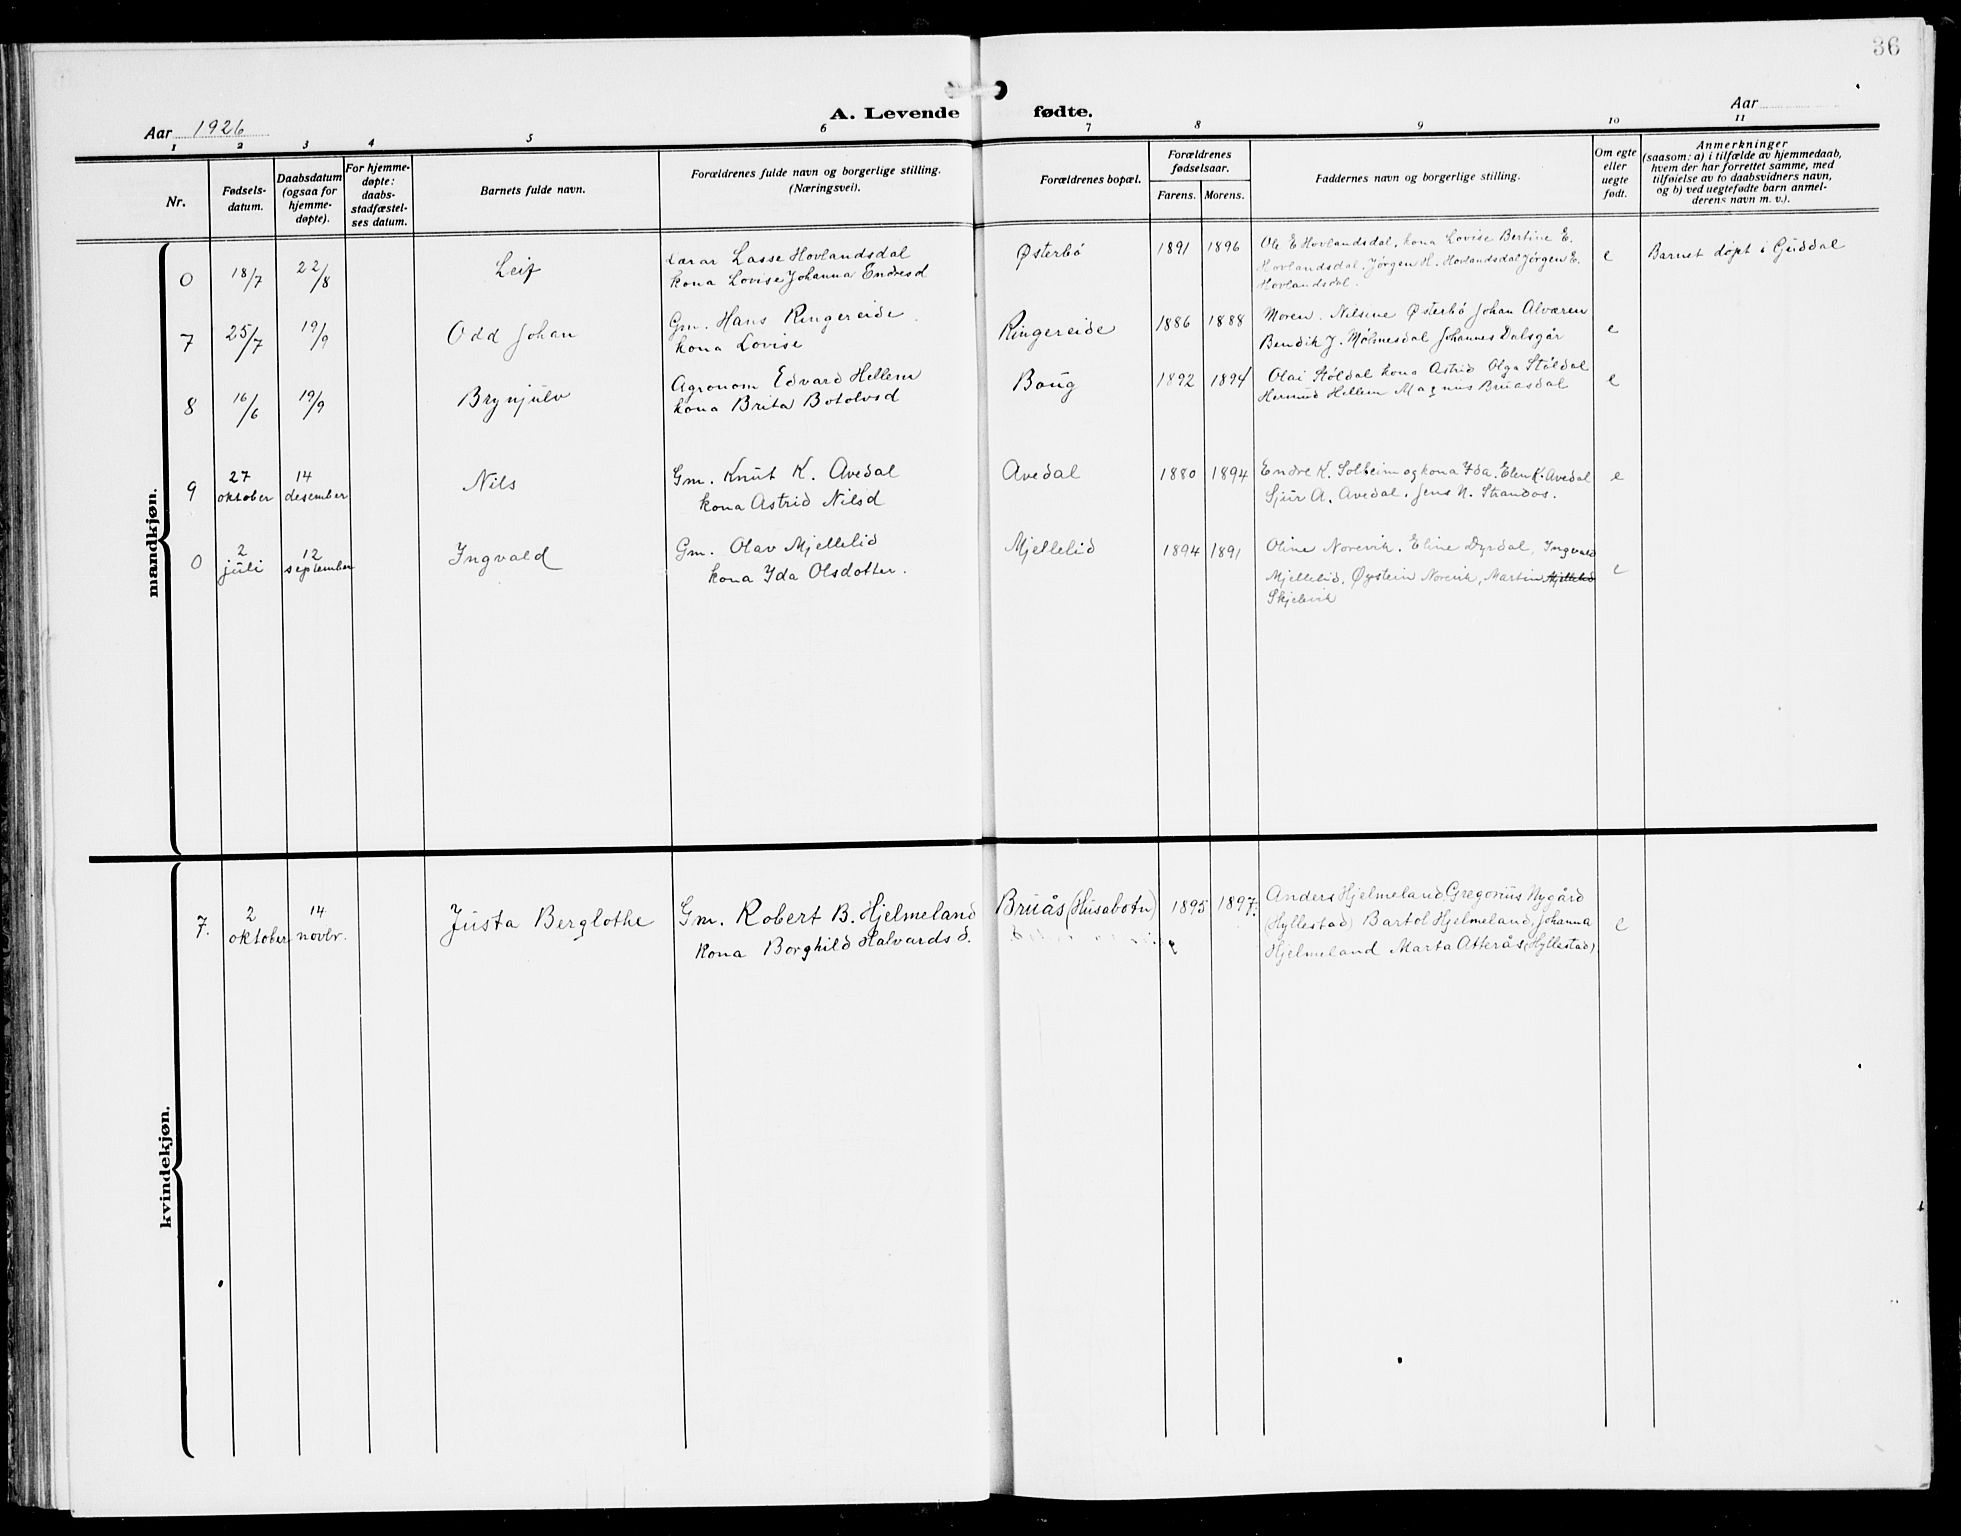 36
A. Levende fødte.
Aar 1926
Aar
1 2 3 4 5 6 7 8 9 10 11
Nr.
Fødsels-
datum.
Daabsdatum
(ogsaa for
hjemme-
døpte).
For hjemme-
døpte:
daabs-
stadfæstel-
ses datum.
Barnets fulde navn.
Forældrenes fulde navn og borgerlige stilling.
(Næringsvei).
Forældrenes bopæl.
Forældrenes
fødselsaar.
Farens. Morens.
Faddernes navn og borgerlige stilling.
Om egte
eller
uegte
født.
Anmerkninger
(saasom: a) i tilfælde av hjemmedaab,
hvem der har forrettet samme, med
tilføielse av to daabsvidners navn,
og b) ved uegtefødte barn anmel-
derens navn m. v.).
mandkjøn.
0 18/7 22/8 Leif
Lærar Lasse Hovlandsdal
kona Lovise Johanna Endresd
Østerbø 1891 1896
Ole E Hovlandsdal, kona Lovise Bertine E.
Hovlandsdal, Jørgen H. Hovlandsdal Jørgen E.
Hovlandsdal.
e Barnet døpt i Guddal
7 25/7 19/9 Odd Johan
Gm. Hans Ringereide
kona Lovise
Ringereide 1886 1888
Moren. Nilsine Østerbø Johan Alværen
Bendik J. Mølmesdal Johannes Dalsgår
e
8 16/6 19/9 Brynjulv
Agronom Edvard Hellem
kona Brita Botolvsd
Baug 1892 1894
Olai Støldal kona Astrid Olga Støldal
Hermud Hellem Magnus Bruasdal
e
9 27 oktober 14 desember Nils
Gm. Knut K. Avedal
kona Astrid Nilsd
Avedal 1880 1894
Endre K. Solheim og kona Ida. Elen K. Avedal
Sjur A. Avedal. Jens N. Strandos.
e
0 2 juli 12 september Ingvald
Gm. Olav Mjellelid
kona Ida Olsdotter.
Mjellelid 1894 1891
Oline Norevik. Eline Dyrdal, Ingvald
Mjellelid, Øystein Norevik, Martin Mjellelid
Skjelevik
e
kvindekjøn.
7. 2 oktober 14 novbr. Justa Berglothe
Gm. Robert B. Hjelmeland
kona Borghild Halvardsd.
Bruås (Husabotn) 1895 1897.
Anders Hjelmeland, Gregorius Nygård
(Hyllestad) Bartol Hjelmeland, Johanna
Hjelmeland Marta Atterås (Hyllestad).
e